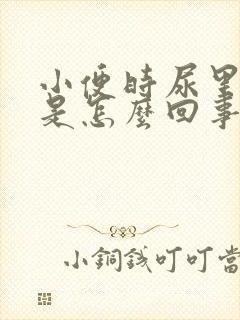 小便時尿里
是怎麼回事
小銅錢叮叮當